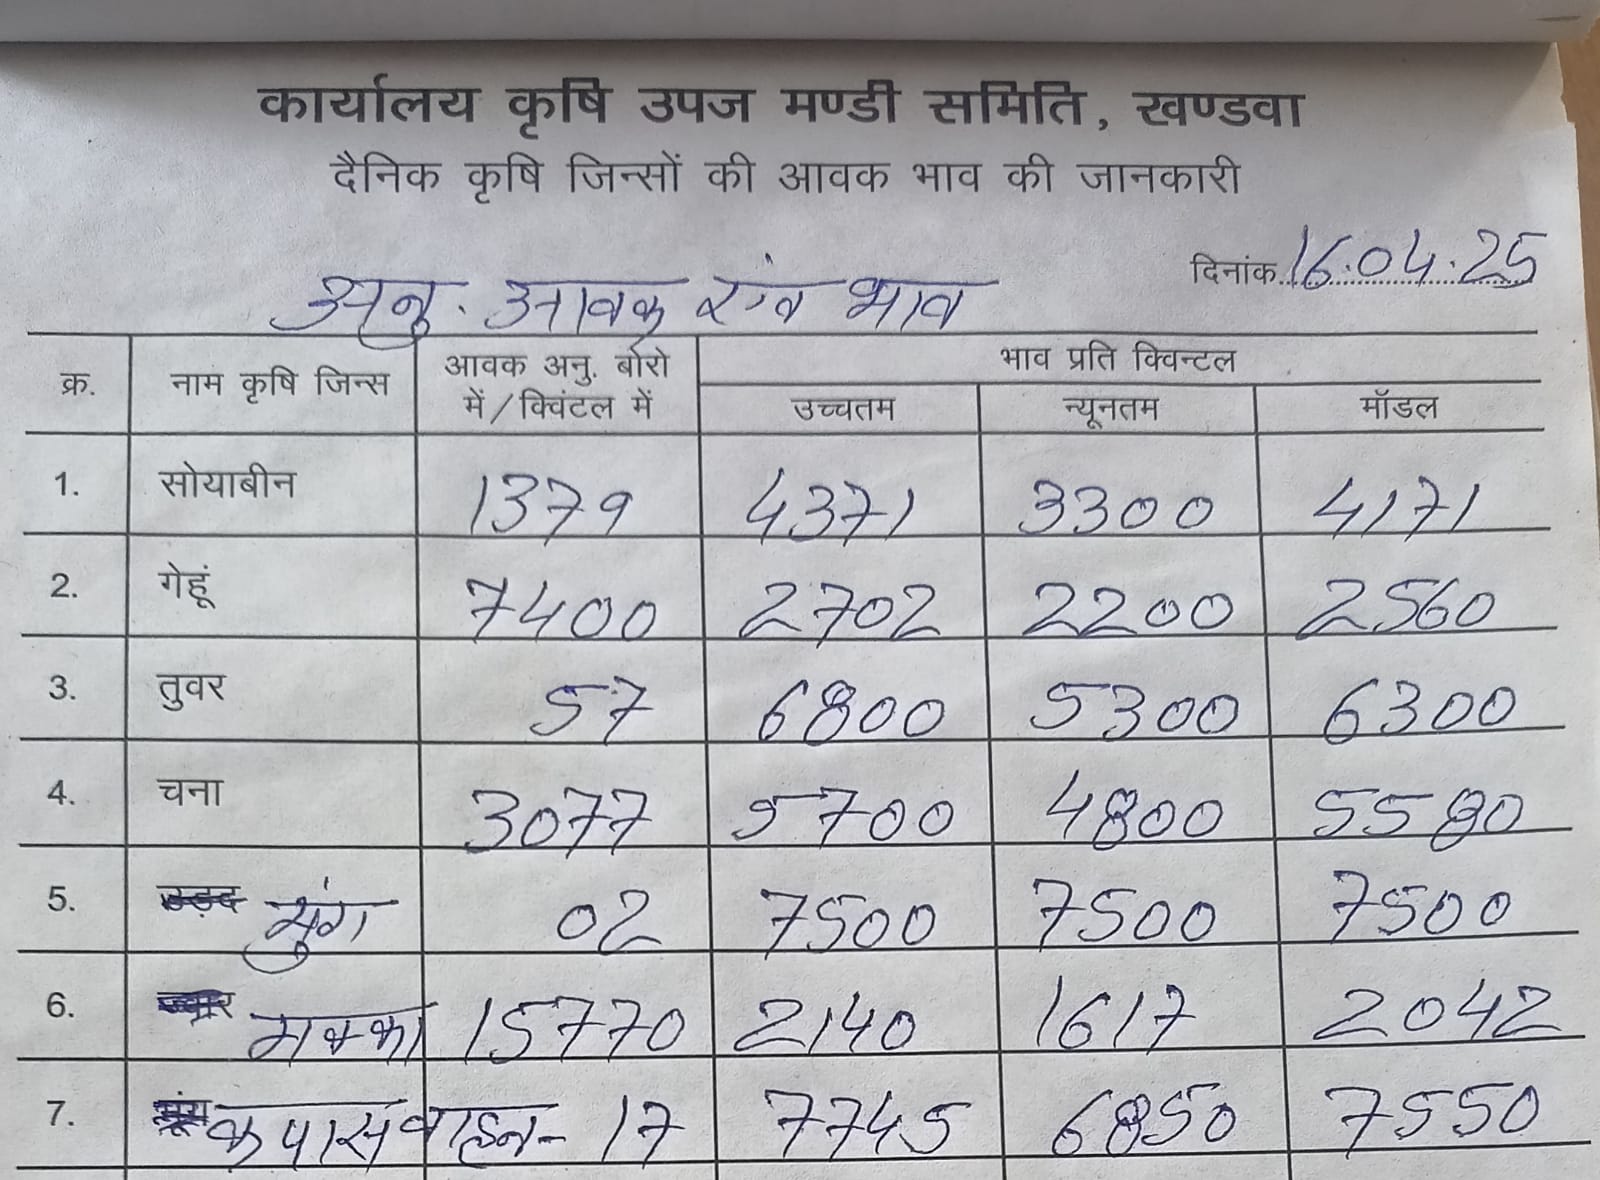 कार्यालय कृषि उपज मण्डी समिति, खण्डवा
दैनिक कृषि जिन्सों की आवक भाव की जानकारी
दिनांक 16.04.25
अनु. आवक एंव भाव
क्र. नाम कृषि जिन्स आवक अनु. बोरो में / क्विंटल में भाव प्रति क्विन्टल
उच्चतम न्यूनतम मॉडल
1. सोयाबीन 1379 4371 3300 4171
2. गेहूं 7400 2702 2200 2560
3. तुवर 57 6800 5300 6300
4. चना 3077 5700 4800 5580
5. उड़द मुंग 02 7500 7500 7500
6. ज्वार मक्का 15770 2140 1617 2042
7. मूंग कपास वाहन - 17 7745 6850 7550